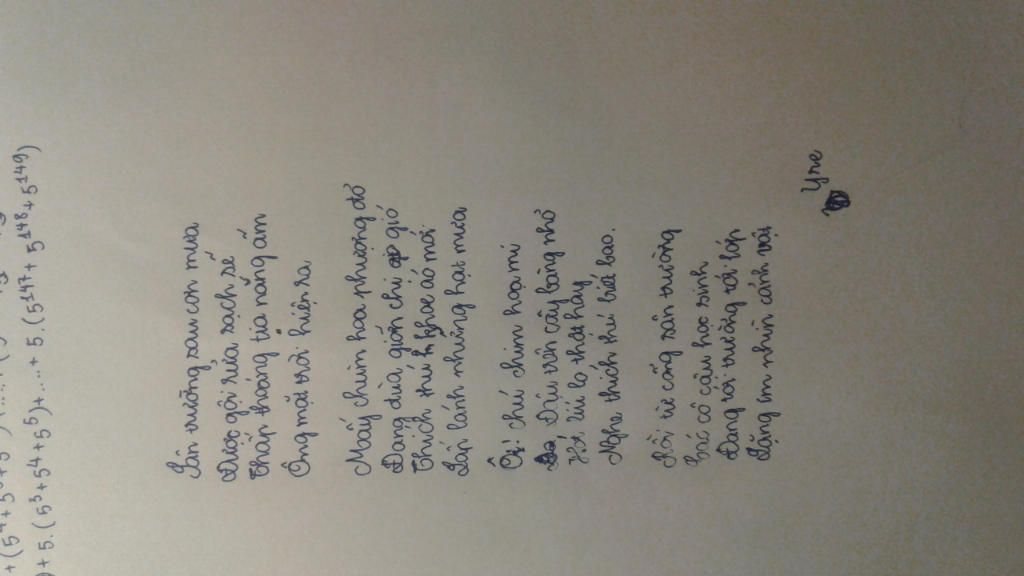 + (5⁴ + 5⁵ + 5
) + 5.(5³ + 5⁴ + 5⁵) + .... + 5.(5¹⁴⁷ + 5¹⁴⁸ + 5¹⁴⁹)
Sân trường sau cơn mưa
Được gội rửa sạch sẽ
Thấp thoáng tia nắng ấm
Ông mặt trời hiện ra
Mấy chùm hoa phượng đỏ
Đang đùa giỡn chị gió
Thích thú khoe áo mới
Lấp lánh những hạt mưa
Ồ! chú chim hoạ mi
Đậu trên cây bàng nhỏ
Hót líu lo thật hay
Nghe thích thú biết bao.
Rồi từ cổng sân trường
Các cô cậu học sinh
Đang rời trường rời lớp
Lặng im nhìn cảnh vật
Yne